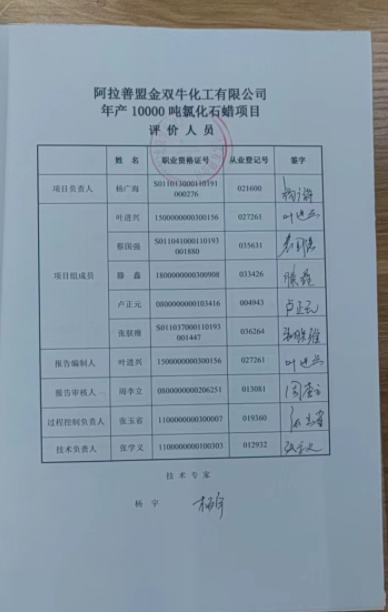 阿拉善盟金双牛化工有限公司
年产 10000 吨氯化石蜡项目
评 价 人 员
姓 名 职业资格证号 从业登记号 签字
项目负责人 杨广海 S011013000110191000276 021600
项目组成员 叶进兴 1500000000300156 027261 叶进兴
蔡国强 S011041000110193001880 035631
滕 鑫 1800000000300908 033426 滕鑫
卢正元 0800000000103416 004943 卢正元
张朕维 S011037000110193001447 036264
报告编制人 叶进兴 1500000000300156 027261 叶进兴
报告审核人 周李立 0800000000206251 013081
过程控制负责人 张玉省 1100000000300007 019360
技术负责人 张学义 1100000000100303 012932
技 术 专 家
杨 宇